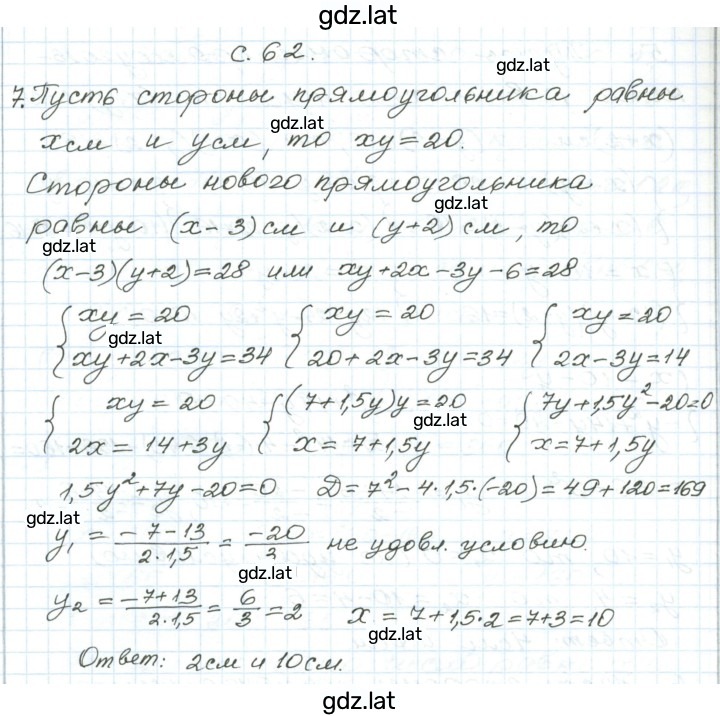 gdz.lat
с. 62.
gdz.lat
7. Пусть стороны прямоугольника равны
gdz.lat
x см и y см, то xy = 20.
Стороны нового прямоугольника
gdz.lat
равны (x - 3) см и (y + 2) см, то
gdz.lat
(x - 3)(y + 2) = 28 или xy + 2x - 3y - 6 = 28
{ xy = 20 { xy = 20 { xy = 20
gdz.lat
{ xy + 2x - 3y = 34 { 20 + 2x - 3y = 34 { 2x - 3y = 14
{ xy = 20 { (7 + 1,5y)y = 20 { 7y + 1,5y² - 20 = 0
gdz.lat
{ 2x = 14 + 3y { x = 7 + 1,5y { x = 7 + 1,5y
1,5y² + 7y - 20 = 0 D = 7² - 4·1,5·(-20) = 49 + 120 = 169
gdz.lat
y₁ = (-7 - 13)/(2·1,5) = -20/3 не удовл. условию.
gdz.lat
y₂ = (-7 + 13)/(2·1,5) = 6/3 = 2 x = 7 + 1,5·2 = 7 + 3 = 10
gdz.lat
Ответ: 2 см и 10 см.
gdz.lat